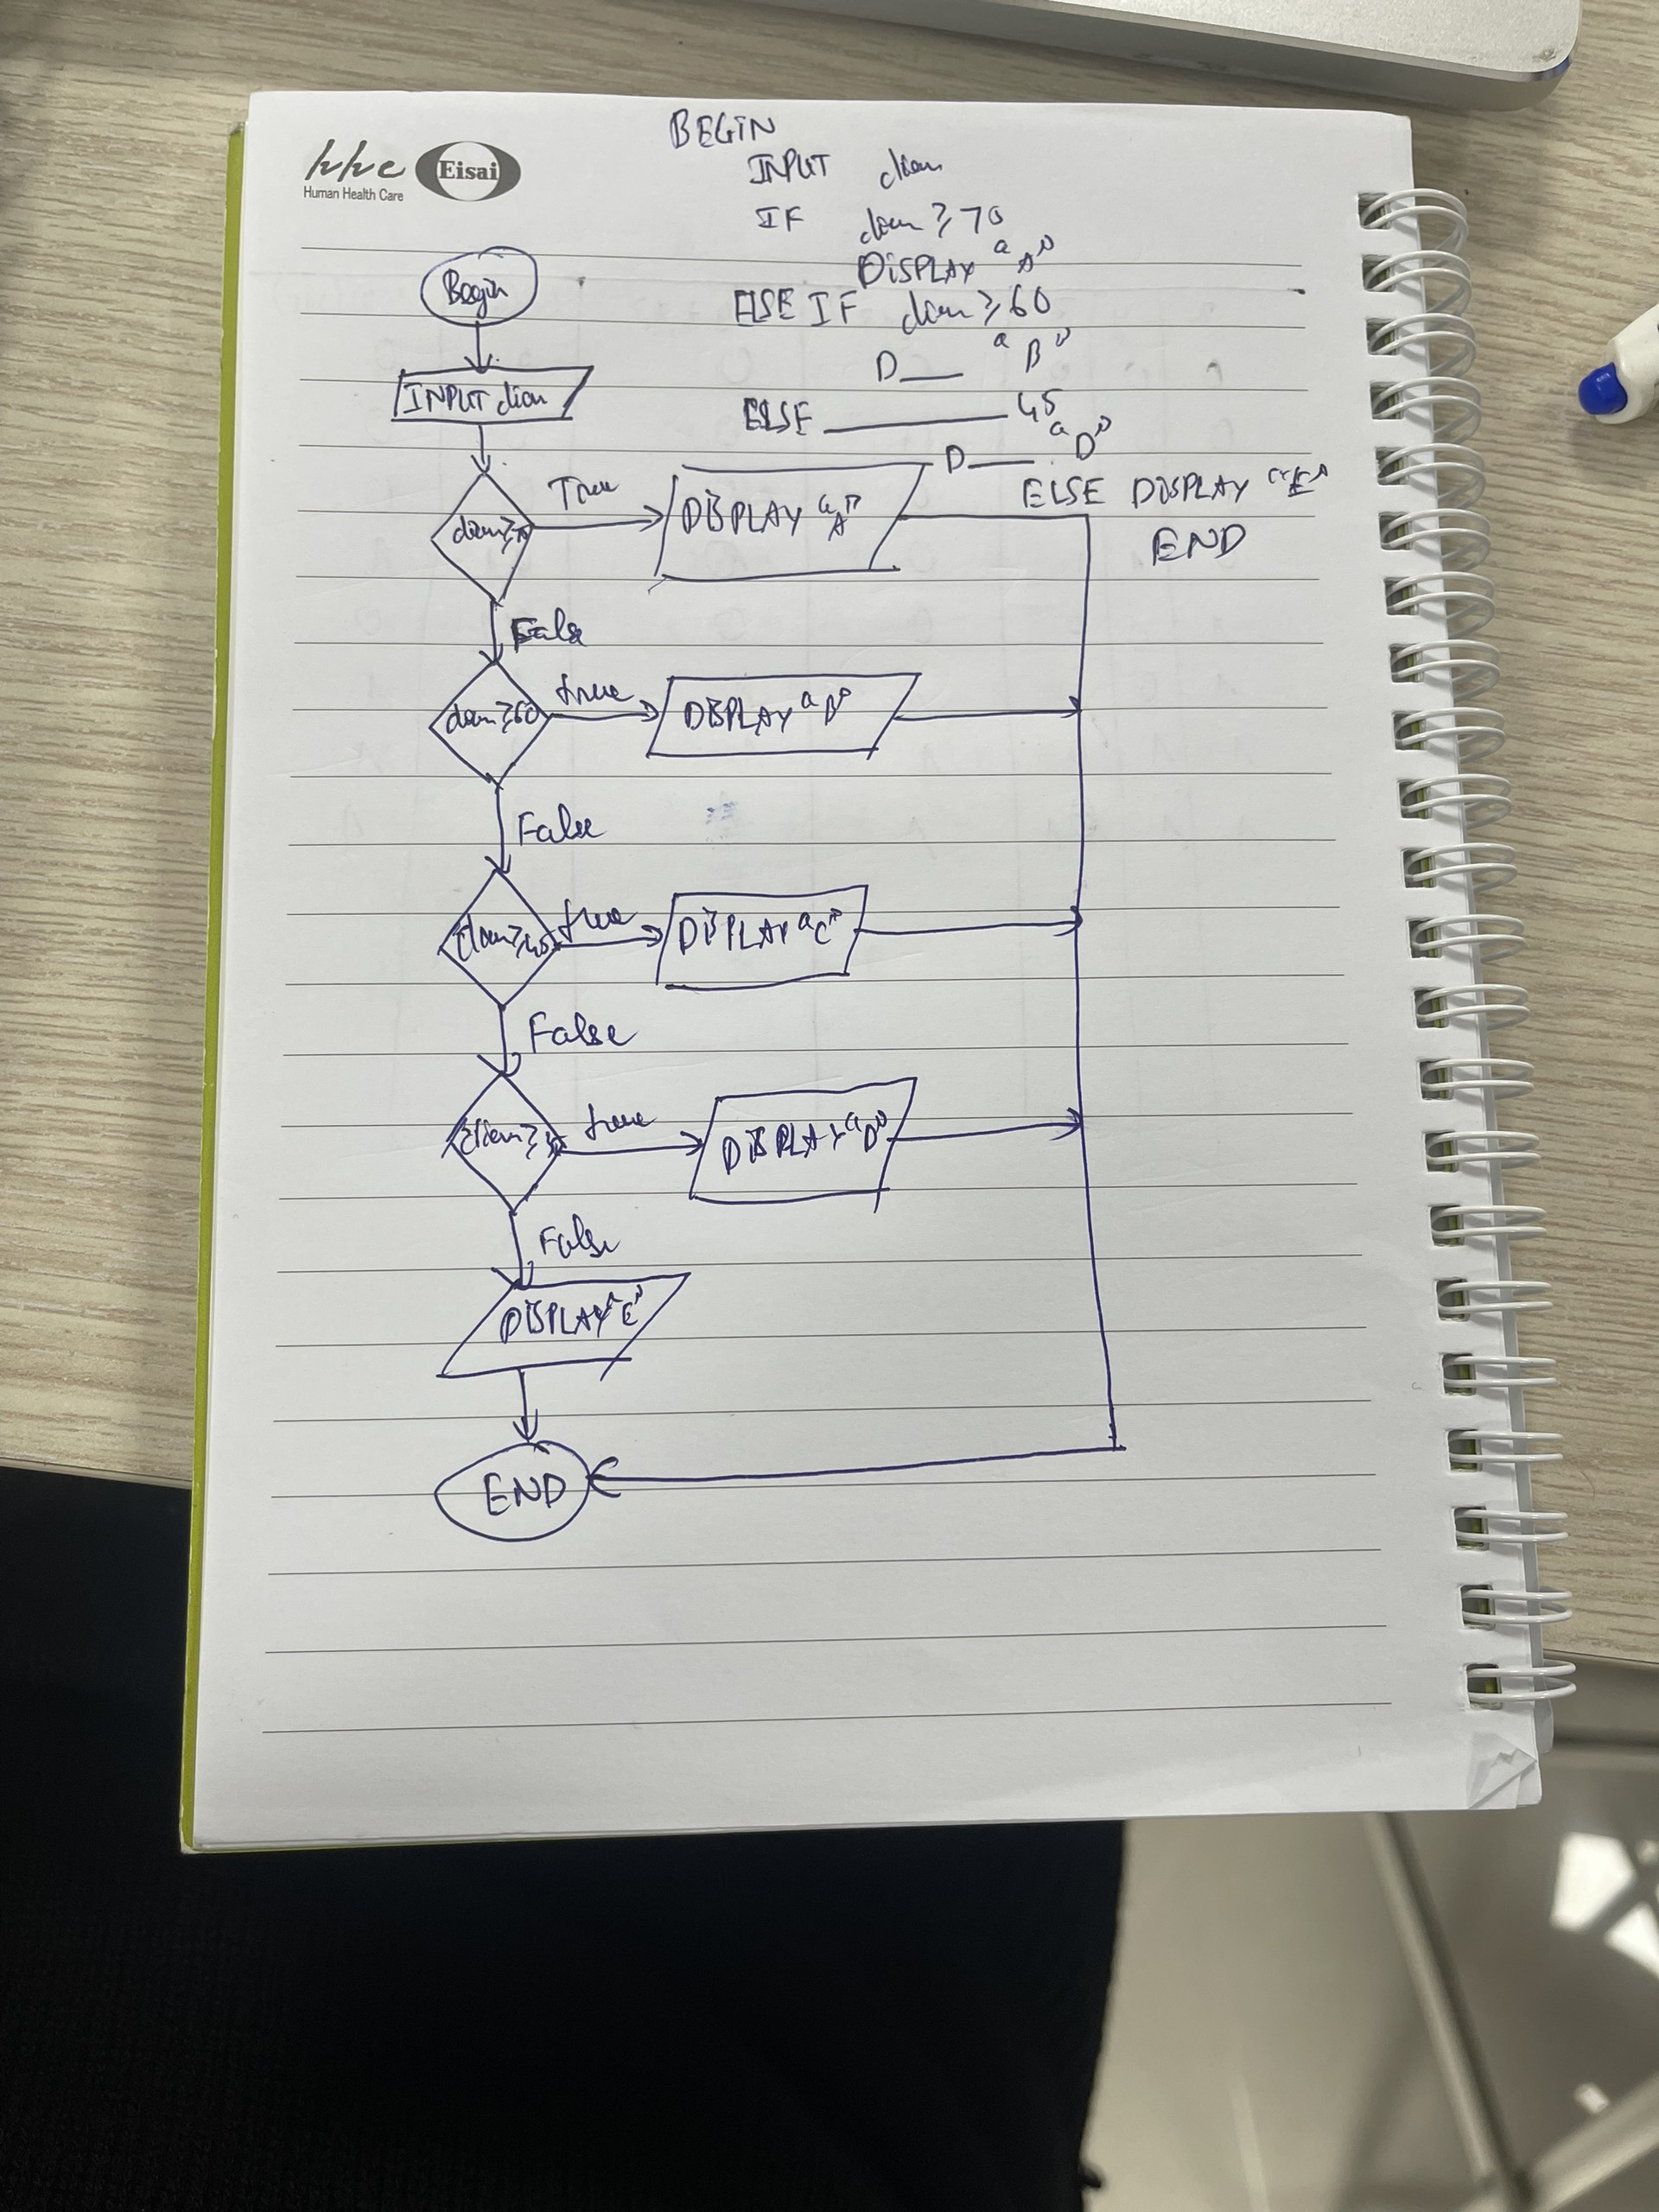 hhc Eisai
Human Health Care
BEGIN
INPUT diem
IF diem ≥ 70
DISPLAY "A"
ELSE IF diem ≥ 60
D__ "B"
ELSE ______ 45
D__ "D"
ELSE DISPLAY "E"
END
Begin
INPUT diem
diem ≥ 70
True
DISPLAY "A"
False
diem ≥ 60
true
DISPLAY "B"
False
diem ≥ 45
true
DISPLAY "C"
False
diem ≥
true
DISPLAY "D"
False
DISPLAY "E"
END